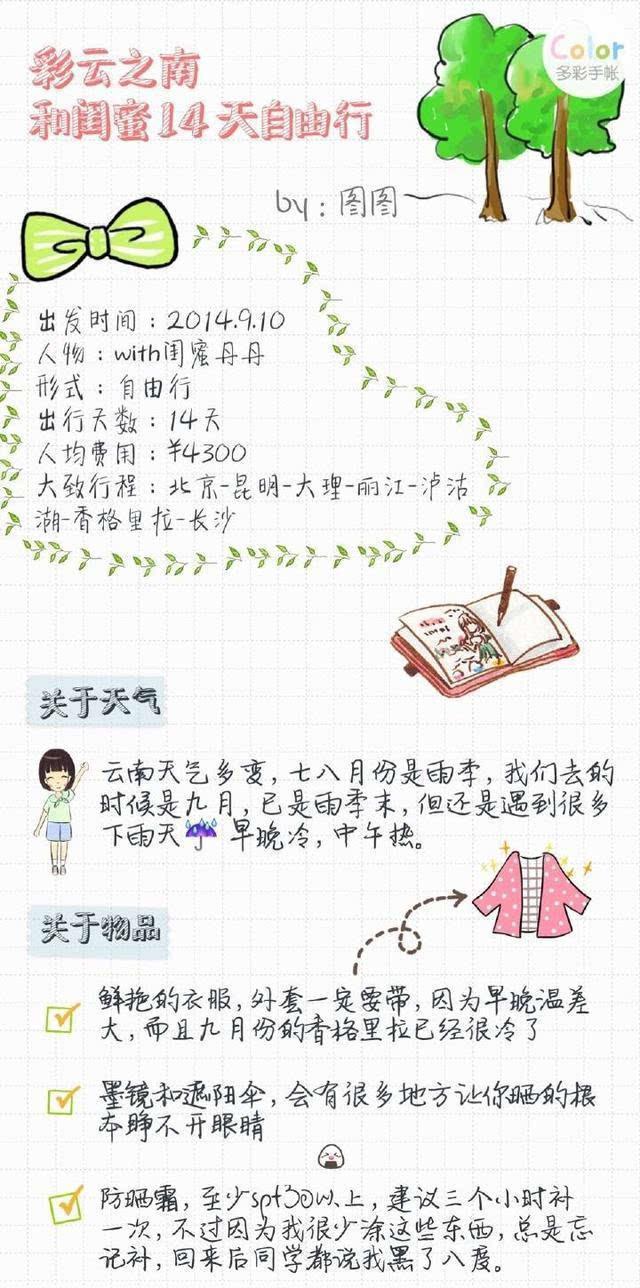 彩云之南
和闺蜜14天自由行
Color
多彩手帐
by：图图
出发时间：2014.9.10
人物：with闺蜜丹丹
形式：自由行
出行天数：14天
人均费用：¥4300
大致行程：北京-昆明-大理-丽江-泸沽
湖-香格里拉-长沙
关于天气
云南天气多变，七八月份是雨季，我们去的
时候是九月，已是雨季末，但还是遇到很多
下雨天 早晚冷，中午热。
关于物品
鲜艳的衣服，外套一定要带，因为早晚温差
大，而且九月份的香格里拉已经很冷了
墨镜和遮阳伞，会有很多地方让你晒的根
本睁不开眼睛
防晒霜，至少spf30以上，建议三个小时补
一次，不过因为我很少涂这些东西，总是忘
记补，回来后同学都说我黑了八度。